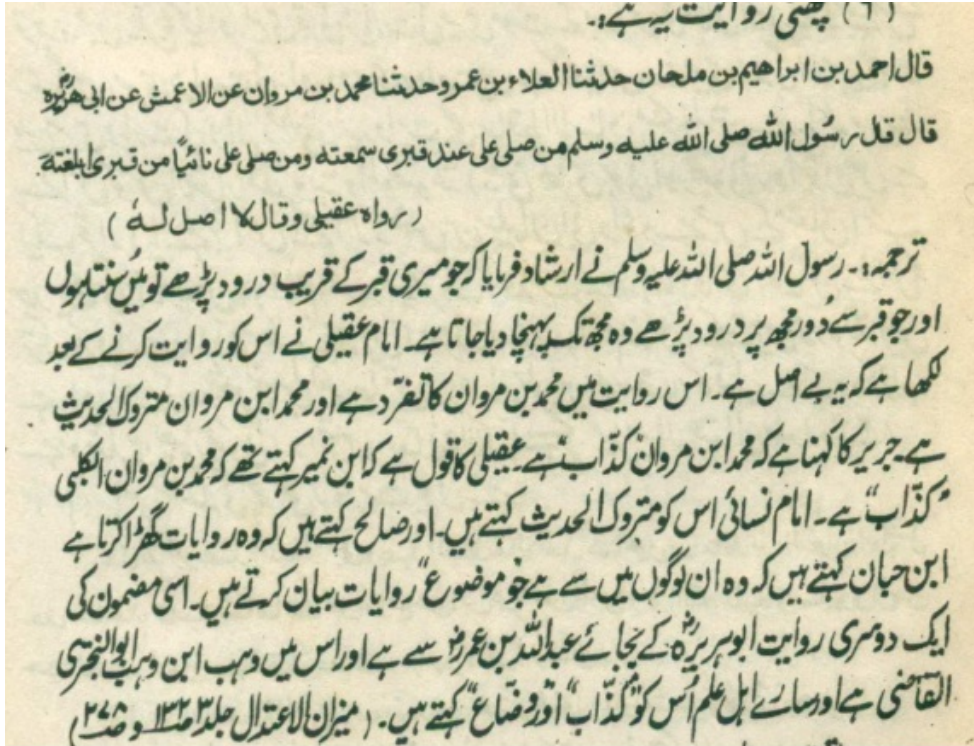 (٦) چھٹی روایت یہ ہے:۔
قال احمد بن ابراھیم بن ملحان حدثنا العلاء بن عمر وحدثنا محمد بن مروان عن الاعمش عن ابی ھریرہؓ
قال قال رسُول اللہ صلی اللہ علیہ وسلم من صلی علی عند قبری سمعتہ ومن صلی علی نائیًا من قبری ابلغتہ
(رواہ عقیلی وقال لا اصل لہٗ)
ترجمہ:۔ رسول اللہ صلی اللہ علیہ وسلم نے ارشاد فرمایا کہ جو میری قبر کے قریب درود پڑھے تو میں سُنتا ہوں
اور جو قبر سے دُور مجھ پر درود پڑھے وہ مجھ تک پہنچا دیا جاتا ہے۔ امام عقیلی نے اس کو روایت کرنے کے بعد
لکھا ہے کہ یہ بے اصل ہے۔ اس روایت میں محمد بن مروان کا تفرّد ہے اور محمد ابن مروان متروک الحدیث
ہے۔ جریر کا کہنا ہے کہ محمد ابن مروان کذّاب ہے۔ عقیلی کا قول ہے کہ ابن نمیر کہتے تھے کہ محمد بن مروان الکلبی
"کذّاب" ہے۔ امام نسائی اس کو متروک الحدیث کہتے ہیں۔ اور صالح کہتے ہیں کہ وہ روایات گھڑا کرتا ہے
ابن حبان کہتے ہیں کہ وہ ان لوگوں میں سے ہے جو موضوع" روایات بیان کرتے ہیں۔ اسی مضمون کی
ایک دوسری روایت ابوہریرہؓ کے بجائے عبداللہ بن عمرؓ سے ہے اور اس میں وہب ابن وہب ابو البختری
القاضی ہے اور سارے اہل علم اُس کو "کذّاب" اور "وضّاع" کہتے ہیں۔ (میزان الاعتدال جلد ۳ ص ۱۳۲ و ص ۲۷۸)